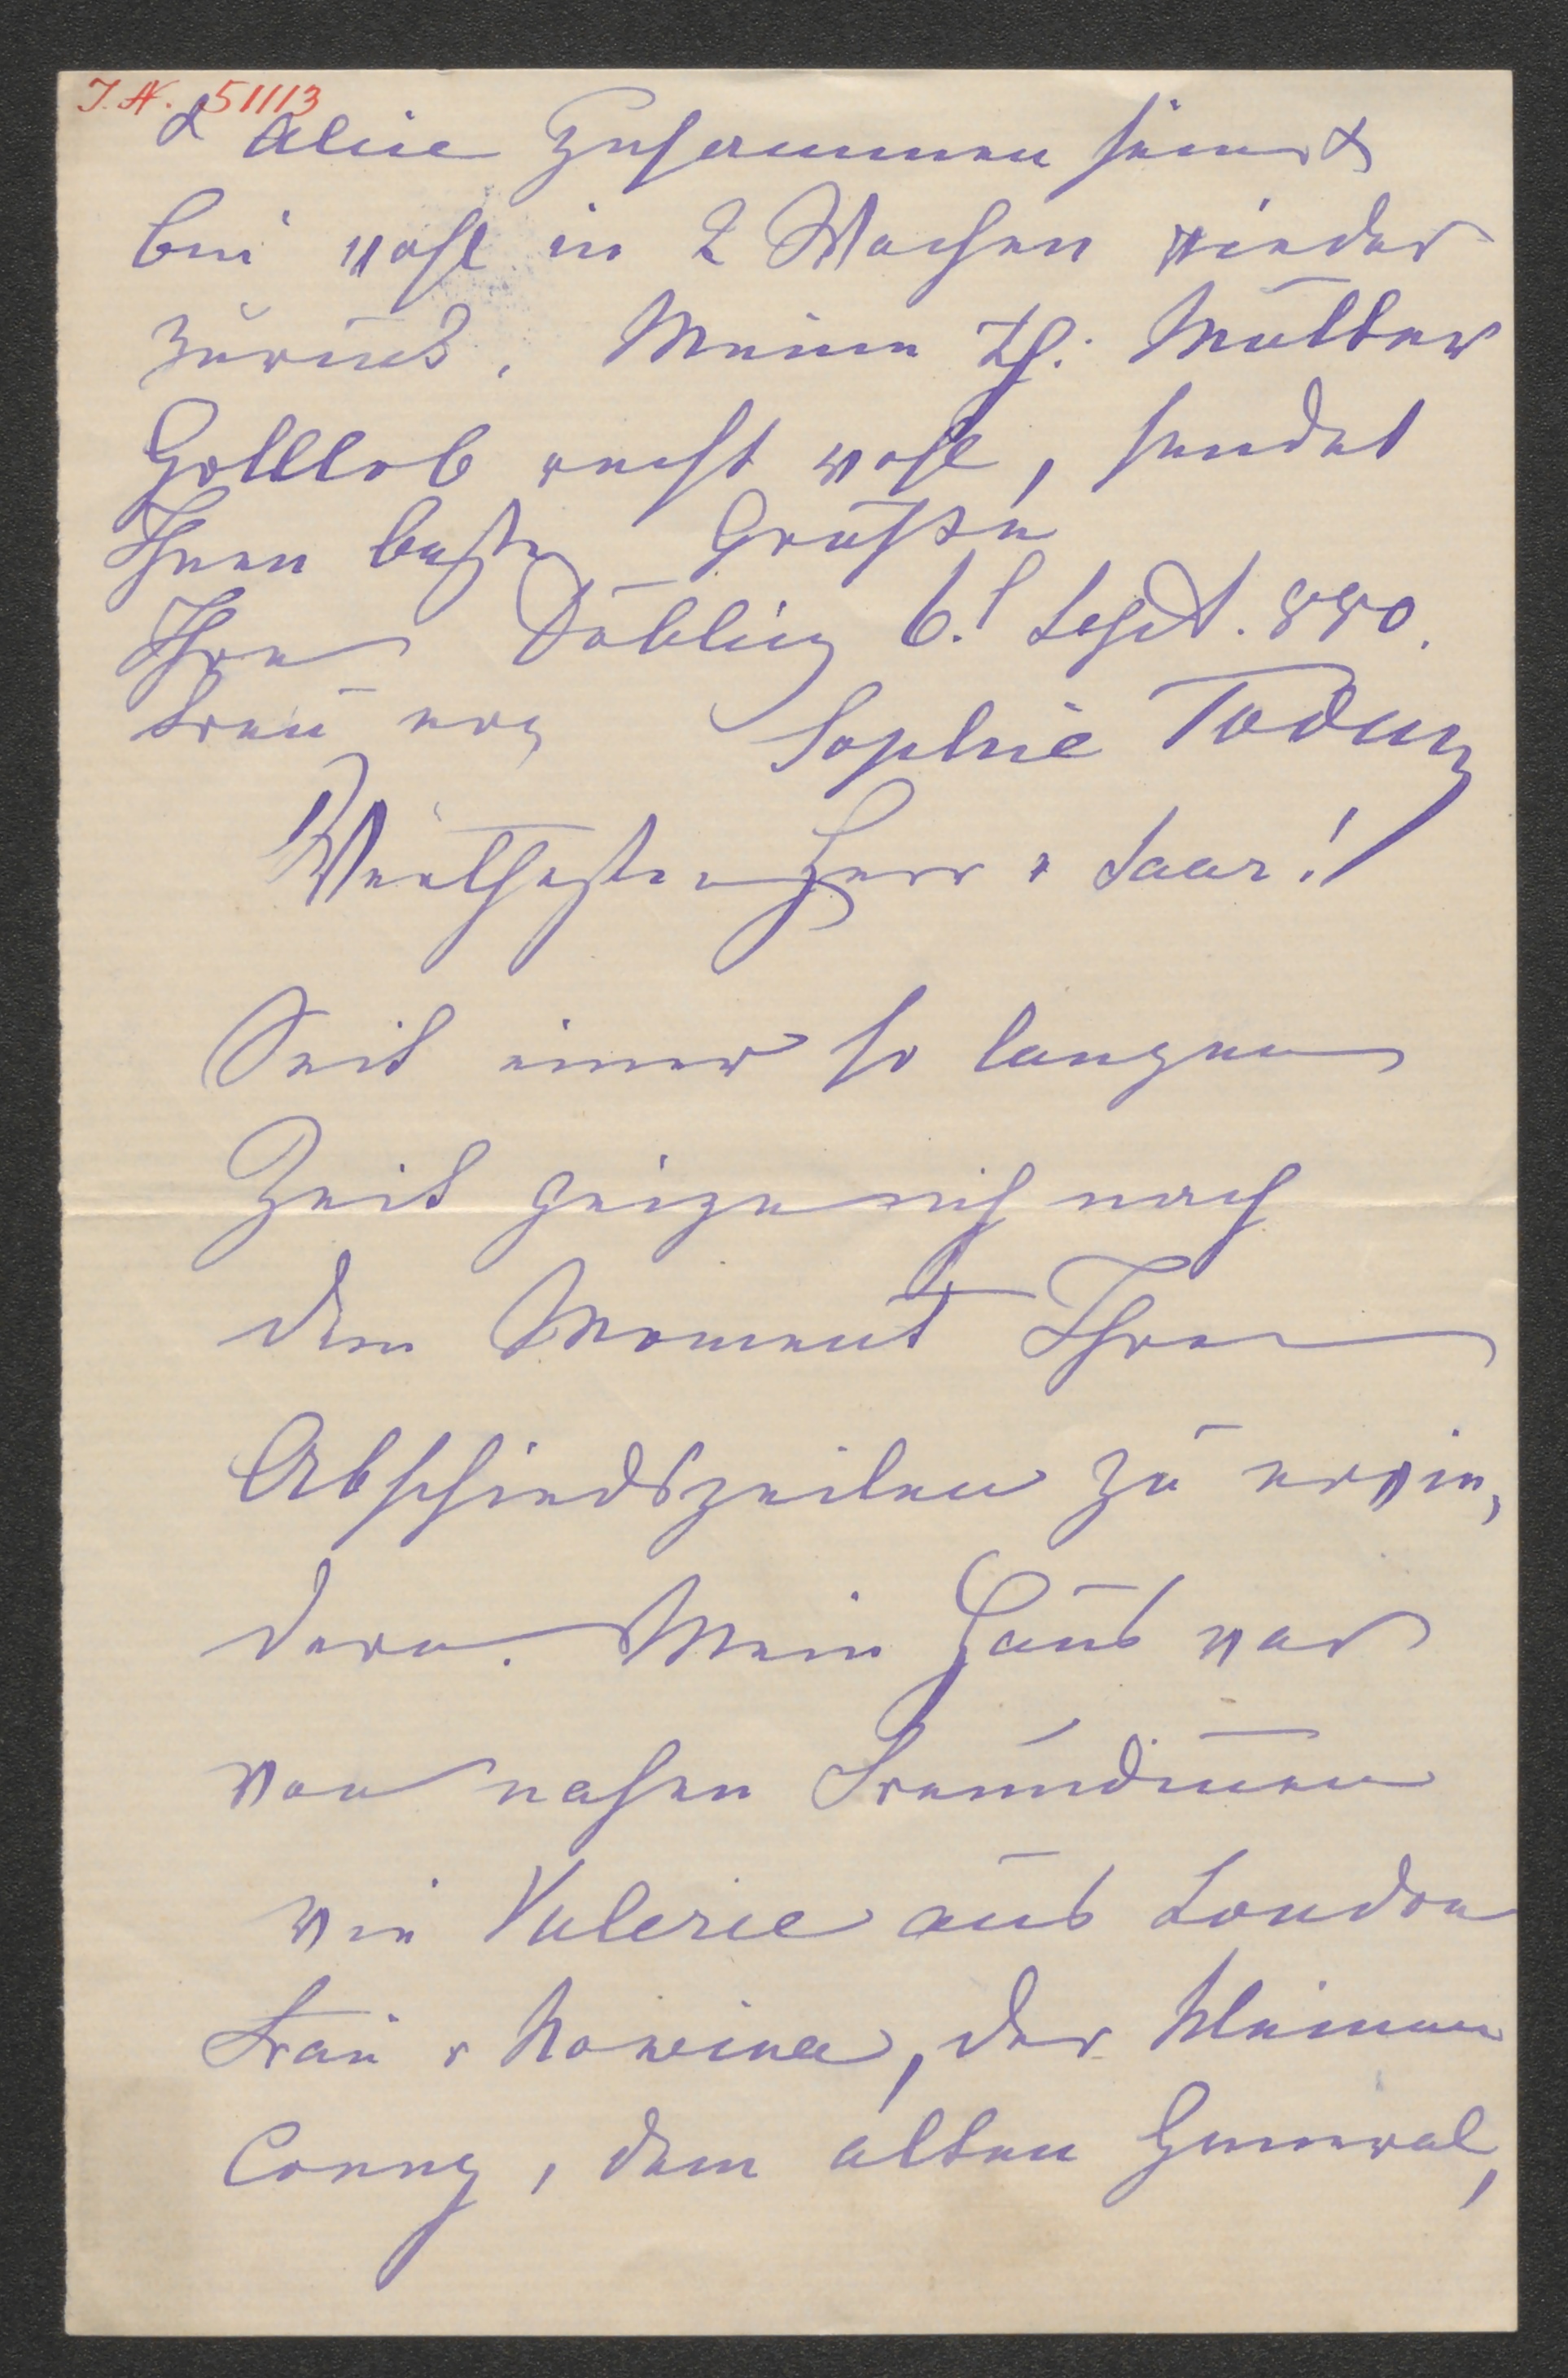 I. N. 51113
& Alice zusammen sein &
bin wohl in 2 Wochen wieder
zurück. Meine Th: Mutter
Gottlob recht wohl, sendet
Ihnen beste Grüße
Ihre Döbling 6.t Sept. 880.
treu erg Sophie Todesco
Werthester Herr v Saar!
Seit einer so langen
Zeit geize ich nach
dem Moment Ihre
Abschiedszeilen zu erwie,
dern. Mein Haus war
von nahen Freundinnen
wie Valerie aus London
Frau v Nowina, der kleinen
Conny, dem alten General,